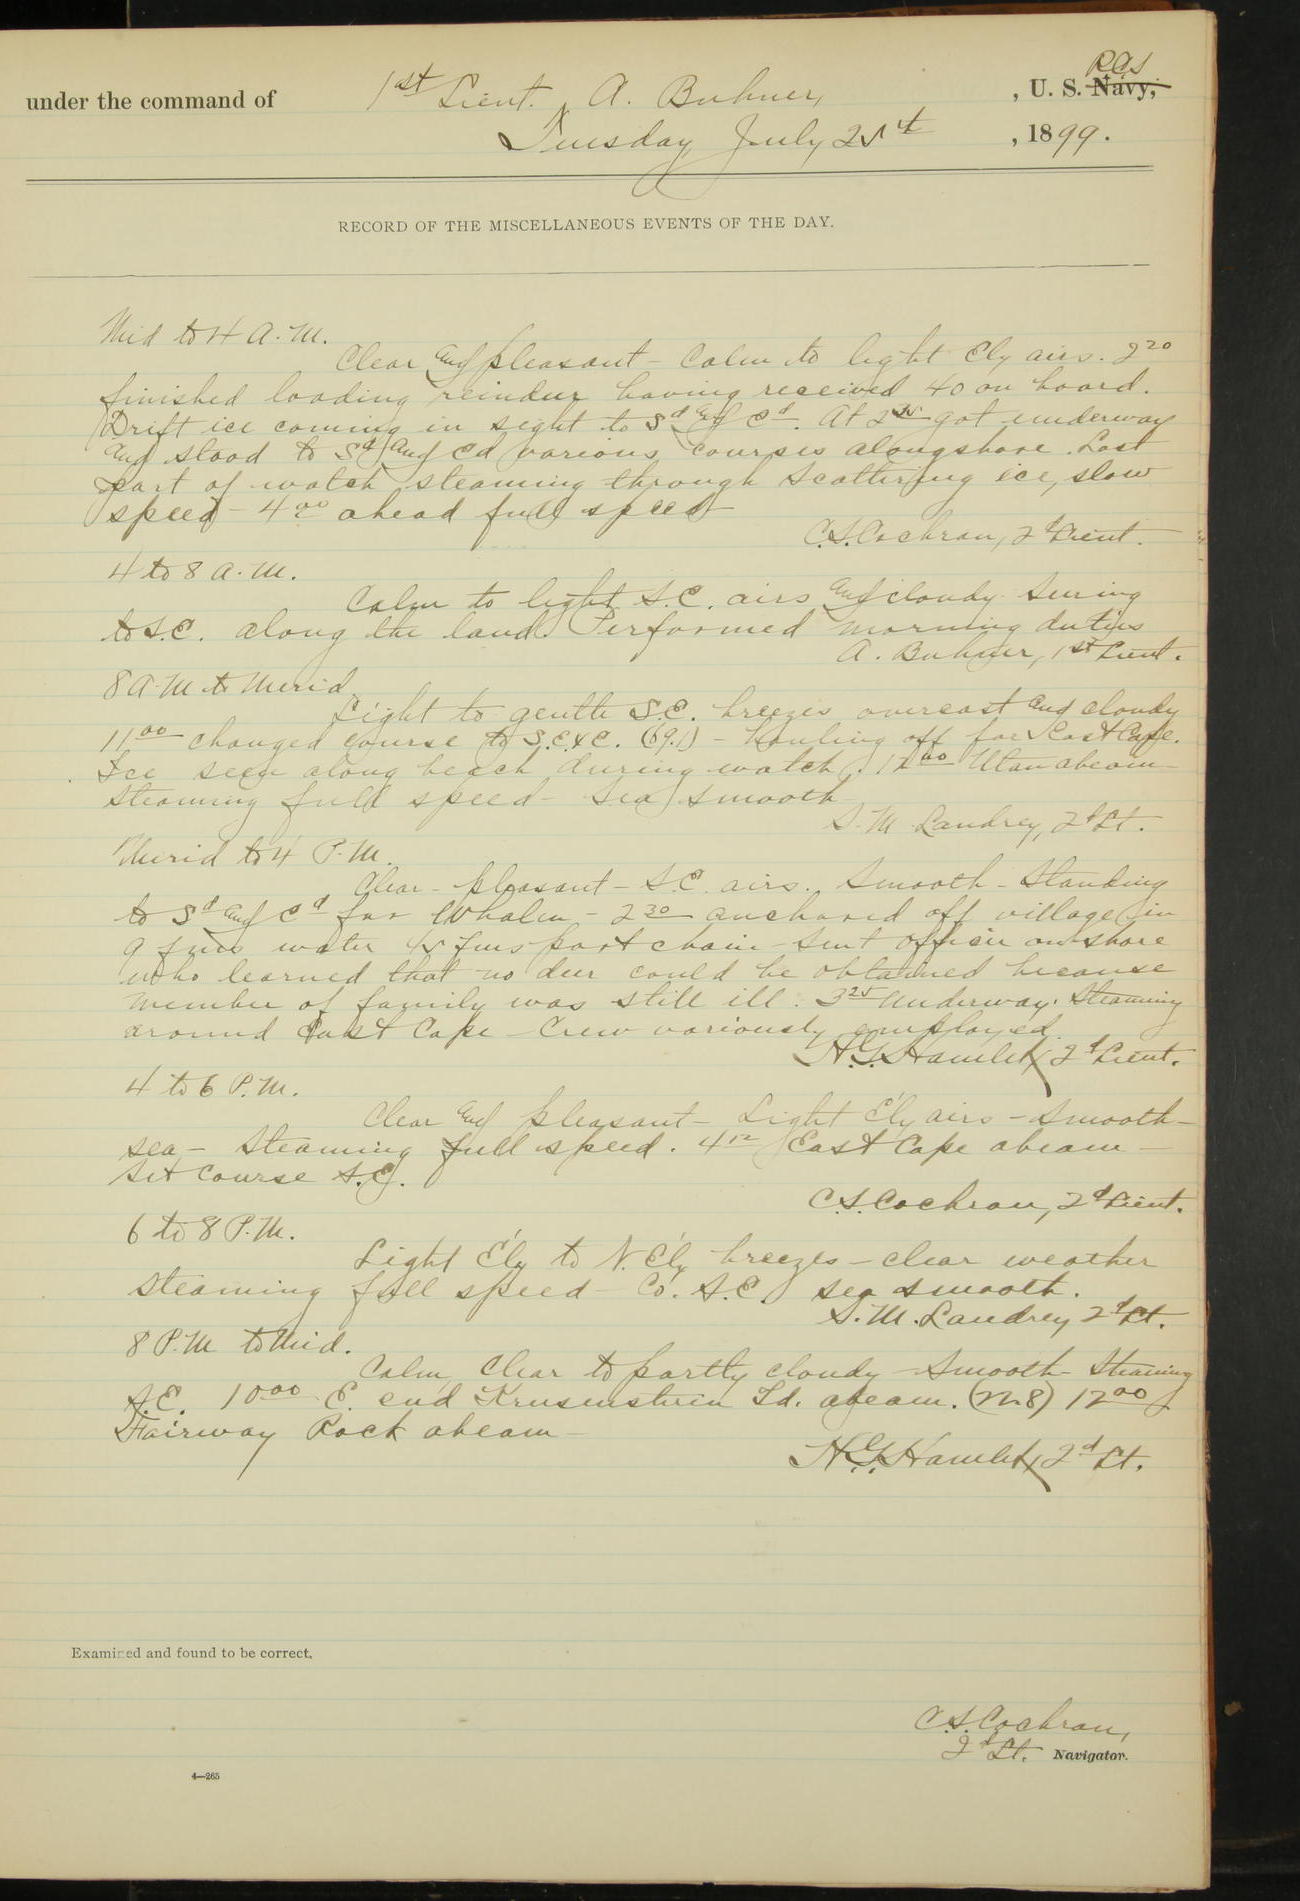 under the command of 1st Lieut. A. Buhner, , U. S. Navy, RCS
Tuesday July 25th , 1899.
RECORD OF THE MISCELLANEOUS EVENTS OF THE DAY.
Mid to 4 A.M.
Clear and pleasant - Calm to light Ely airs. 2 20
finished loading reindeer having received 40 on board.
Drift ice coming in sight to Sd and Ed. At 2 35 got underway
and stood to Sd and Ed various courses alongshore. Last
part of watch steaming through scattering ice, slow
speed - 4 00 ahead full speed
C.S. Cochran, 2d Lieut.
4 to 8 A.M.
Calm to light S.E. airs and cloudy.
to S.E. along the land. Performed morning duties
A. Buhner, 1st Lieut.
8 A.M to Merid.
Light to gentle S.E. breezes overcast and cloudy
11 00 changed course to S.E.xE. (69.1) - hauling off for East Cape.
Ice seen along beach during watch. 12 00 Utan abeam -
Steaming full speed - Sea smooth
S. M. Landrey, 2d Lt.
Merid to 4 P.M.
Clear - pleasant - S.E. airs. Smooth - Standing
to Sd and Ed for Whalen - 2 30 anchored off village in
9 fms water fms port chain - Sent officer on shore
who learned that no deer could be obtained because
member of family was still ill. 3 25 Underway. Steaming
around East Cape - Crew variously employed.
H.G. Hamlet, 2d Lieut.
4 to 6 P.M.
Clear and pleasant - Light E'ly airs - Smooth -
sea - Steaming full speed. 4 12 East Cape abeam -
Set course S.E.
C.S. Cochran, 2d Lieut.
6 to 8 P.M.
Light E'ly to N.E'ly breezes - clear weather
steaming full speed - Co. S.E. sea smooth.
S. M. Landrey 2d Lt.
8 P.M to Mid.
Calm, Clear to partly cloudy - Smooth - Steaming
S.E. 10 00 E. end Krusenstern Id. abeam. 12 00
Fairway Rock abeam -
H.G. Hamlet, 2d Lt.
Examined and found to be correct.
C.S. Cochran,
2d Lt. Navigator.
4—265